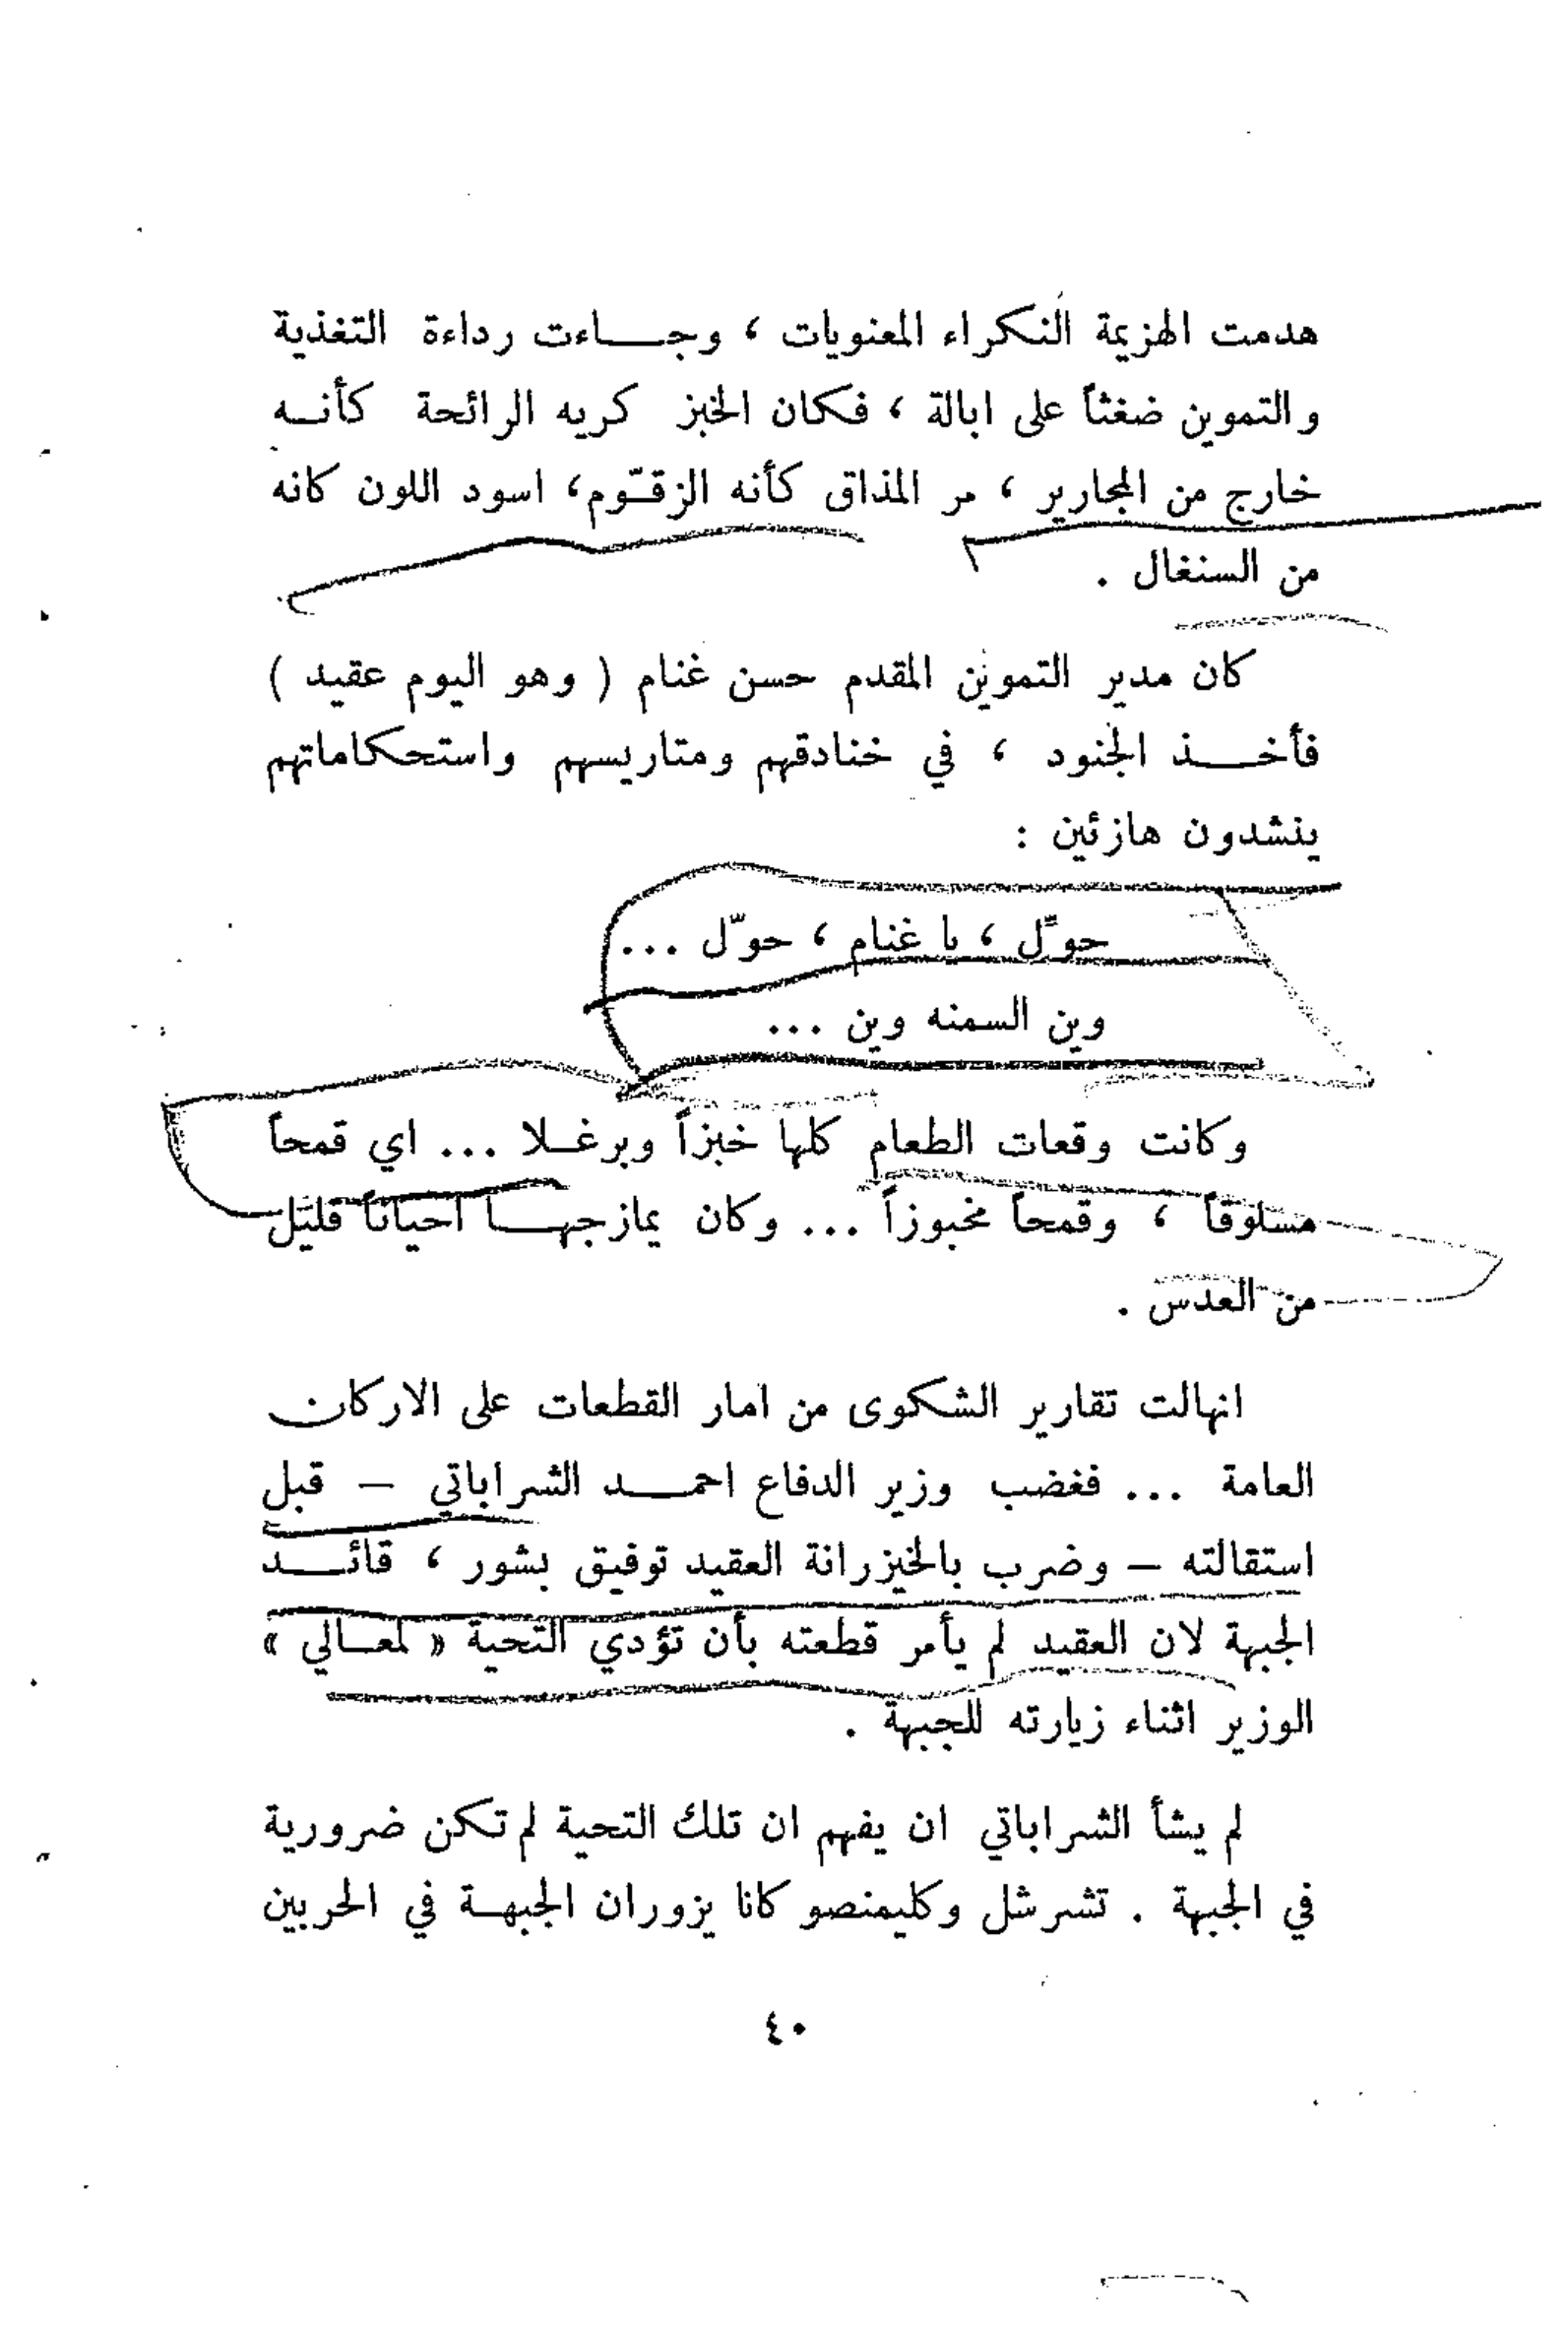 هدمت الهزيمة النكراء المعنويات ، وجـــاءت رداءة التغذية
والتموين ضغثاً على ابالة ، فكان الخبز كريه الرائحة كأنـه
خارج من المجارير ، مر المذاق كأنه الزقـّوم، اسود اللون كانه
من السنغال .
كان مدير التموين المقدم حسن غنام ( وهو اليوم عقيد )
فأخـــذ الجنود ، في خنادقهم ومتاريسهم واستحكاماتهم
ينشدون هازئين :
حوّل ، يا غنام ، حوّل ...
وين السمنه وين ...
وكانت وقعات الطعام كلها خبزاً وبرغـلا ... اي قمحاً
مسلوقاً ، وقمحاً مخبوزاً ... وكان يمازجهـــا احياناً قليل
من العدس .
انهالت تقارير الشكوى من امار القطعات على الاركان
العامة ... فغضب وزير الدفاع احمـــد الشراباتي – قبل
استقالته – وضرب بالخيزرانة العقيد توفيق بشور ، قائـــد
الجبهة لان العقيد لم يأمر قطعته بأن تؤدي التحية « لمعـالي »
الوزير اثناء زيارته للجبهة .
لم يشأ الشراباتي ان يفهم ان تلك التحية لم تكن ضرورية
في الجبهة . تشرشل وكليمنصو كانا يزوران الجبهـة في الحربين
٤٠